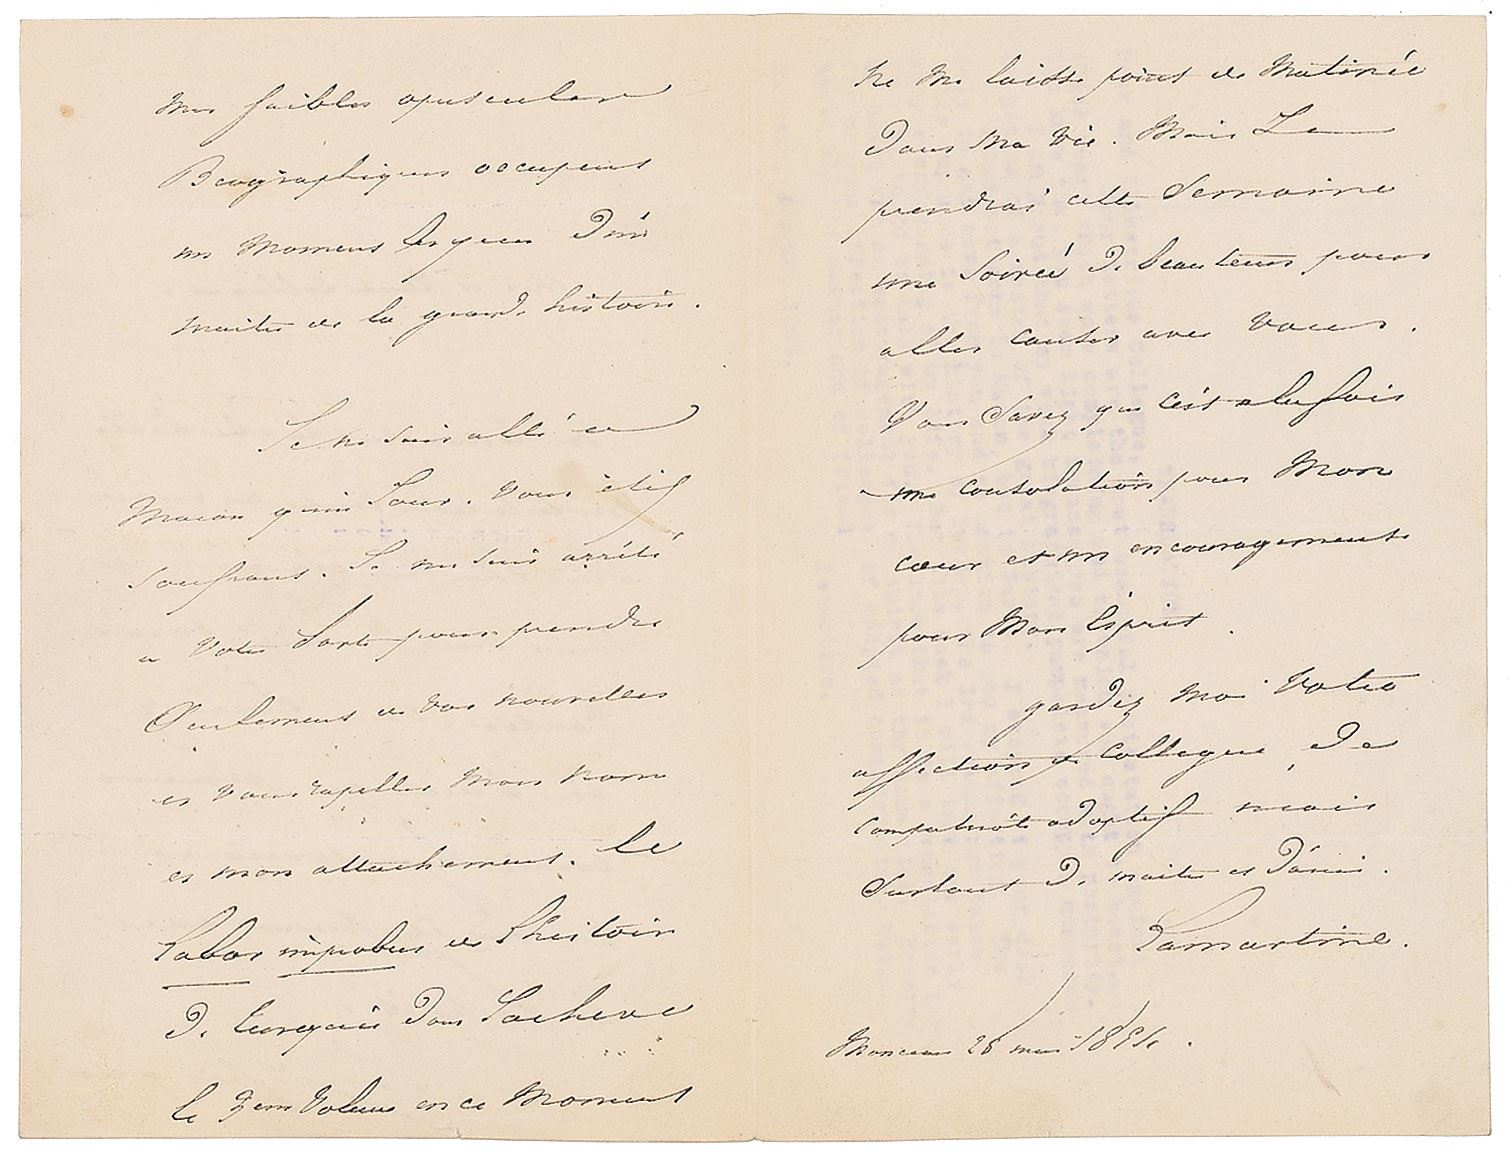 Mes faibles opuscules
Biographiques occupent
un moment les yeux d'un
maitre de la grande histoire.
Je ne suis allé a
Macon qu'un Jour. Vous étiez
souffrant. Je me suis arrété
a votre porte pour prendre
seulement de vos nouvelles
et vous rapeller mon nom
et mon attachement. Le
labor improbus de l'histoire
de turquie dont j'acheve
le volume en ce moment
ne me laisse point de matinée
dans ma vie. Mais Je
prendrai cette semaine
une soirée de pour
aller causer avec vous.
Vous savez que c'est a la fois
une consolation pour mon
cœur et un encouragement
pour mon Esprit.
gardez moi votre
affection de collegue, de
compatriote adoptif mais
surtout de maitre et d'ami.
Lamartine.
Monceau 28 mai 1854.